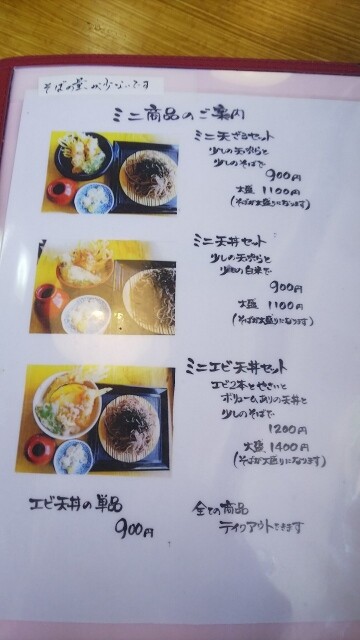 そばの量が少ないです
ミニ商品のご案内
ミニ天ざるセット
少しの天ぷらと
少しのそばで
900円
大盛 1100円
(そばが大盛りになります)
ミニ天丼セット
少しの天ぷらと
少しの白米で
900円
大盛 1100円
(そばが大盛りになります)
ミニエビ天丼セット
エビ2本とやさいと
ボリュームありの天丼と
少しのそばで
1200円
大盛 1400円
(そばが大盛りになります)
エビ天丼の単品
900円
全ての商品
テイクアウトできます